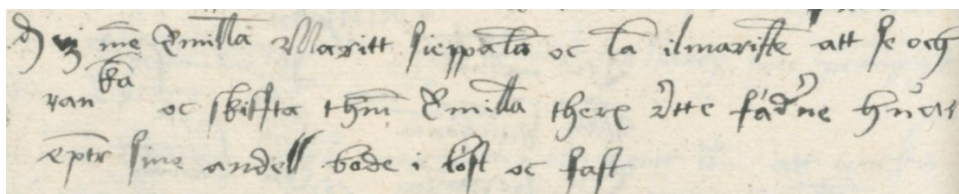 mē Emillā Maritt sieppalā oc lā ilmariste att se och
ranka oc skiffta thm̄ Emillā there rtte fäderne huar
epter sine andell bode i löst oc fast